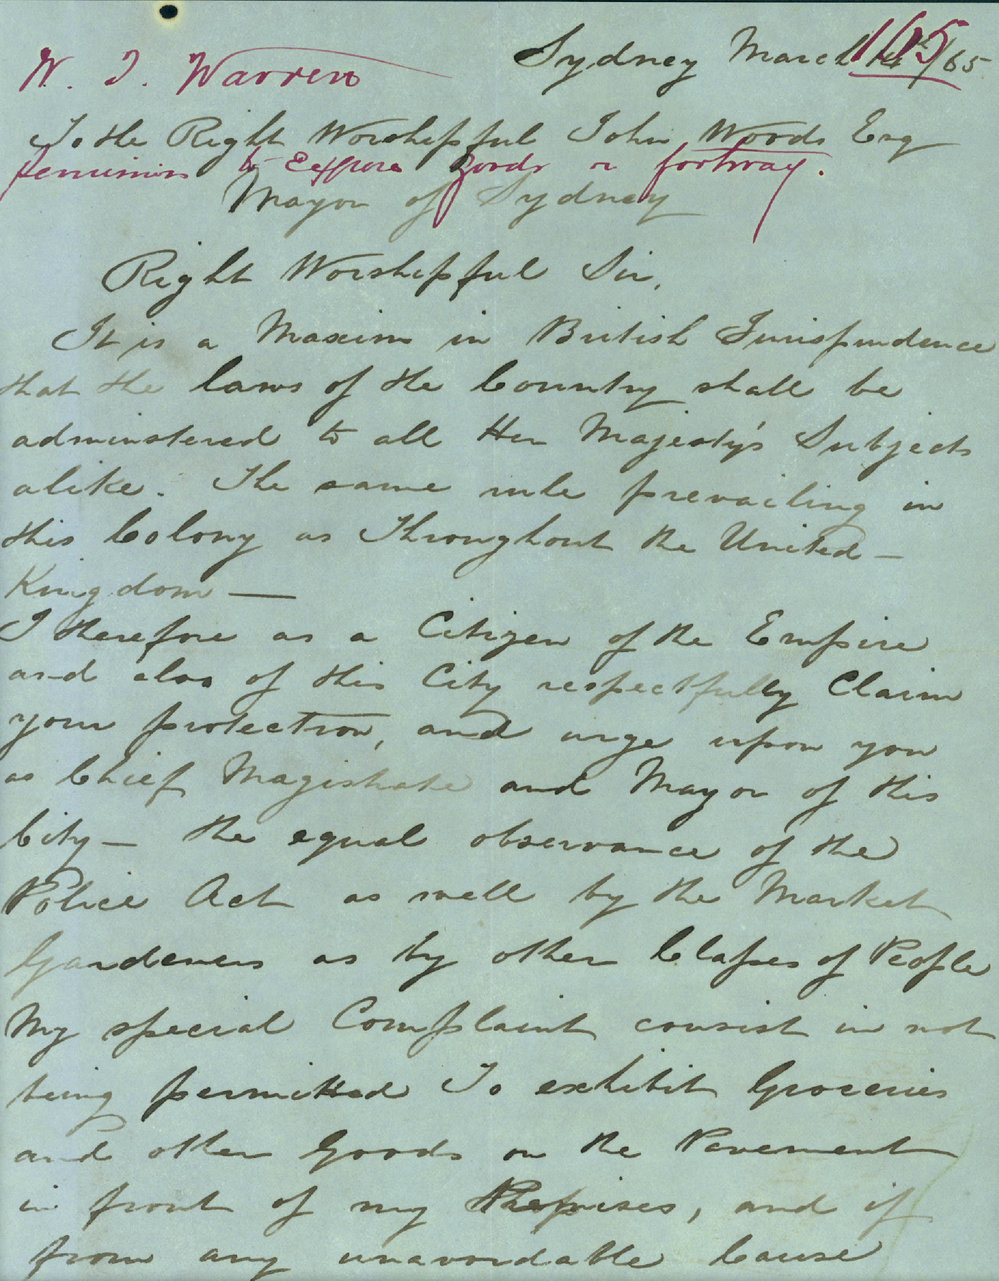 165
Sydney March /65
W. J. Warren
To the Right Worshipful John Woods Esq
Permission to Expose goods on footway.
Mayor of Sydney
Right Worshipful Sir,
It is a Maxim in British Jurispudence
that the laws of the Country shall be
adminstered to all Her Majesty's Subjects
alike. The same rule prevailing in
this Colony as Throughout the United –
Kingdom —
I therefore as a Citizen of the Empire
and also of this City respectfully Claim
your protection, and urge upon you
as Chief Magistrate and Mayor of this
City – the equal observance of the
Police Act as well by the Market
Gardeners as by other Classes of People
My special Complaint consist in not
being permitted To exhibit Groceries
and other Goods on the Pavement
in front of my Premises, and if
from any unavoidable Cause